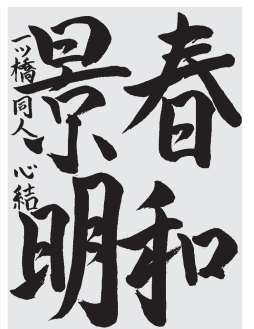 春和
景明
一ツ橋同人 心結